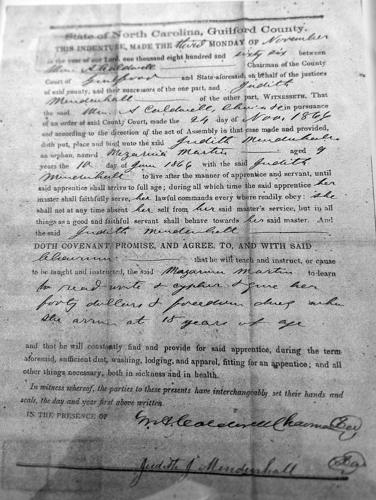 State of North Carolina, Guilford County.
THIS INDENTURE, MADE THE third MONDAY OF November
in the year of our Lord, one thousand eight hundred and sixty six between
Wm. S Caldwell Chairman of the County
Court of Guilford and State aforesaid, on behalf of the justices
of said county, and their successors of the one part, and Judith
Mendenhall of the other part, WITNESSETH. That
the said Wm. S Caldwell, Chairman in pursuance
of an order of said County Court, made the 24 day of Nov, 1866
and according to the direction of the act of Assembly in that case made and provided,
doth put, place and bind unto the said Judith Mendenhall
an orphan, named Martin aged 9
years the 10 day of June 1866 with the said Judith
Mendenhall to live after the manner of apprentice and servant, until
said apprentice shall arrive to full age; during all which time the said apprentice her
master shall faithfully serve, her lawful commands every where readily obey: she
shall not at any time absent her self from her said master's service, but in all
things as a good and faithful servant shall behave towards her said master. And
the said Judith Mendenhall
DOTH COVENANT, PROMISE, AND AGREE, TO, AND WITH SAID
Chairman that he will teach and instruct, or cause
to be taught and instructed, the said Martin to learn
to read write & cypher & give her
forty dollars & freedom when
she arrives at 18 years of age
and that he will constantly find and provide for said apprentice, during the term
aforesaid, sufficient diet, washing, lodging, and apparel, fitting for an apprentice; and all
other things necessary, both in sickness and in health.
In witness whereof, the parties to these presents have interchangeably set their hands and
seals, the day and year first above written.
IN THE PRESENCE OF
Caldwell Chairman
Judith J Mendenhall